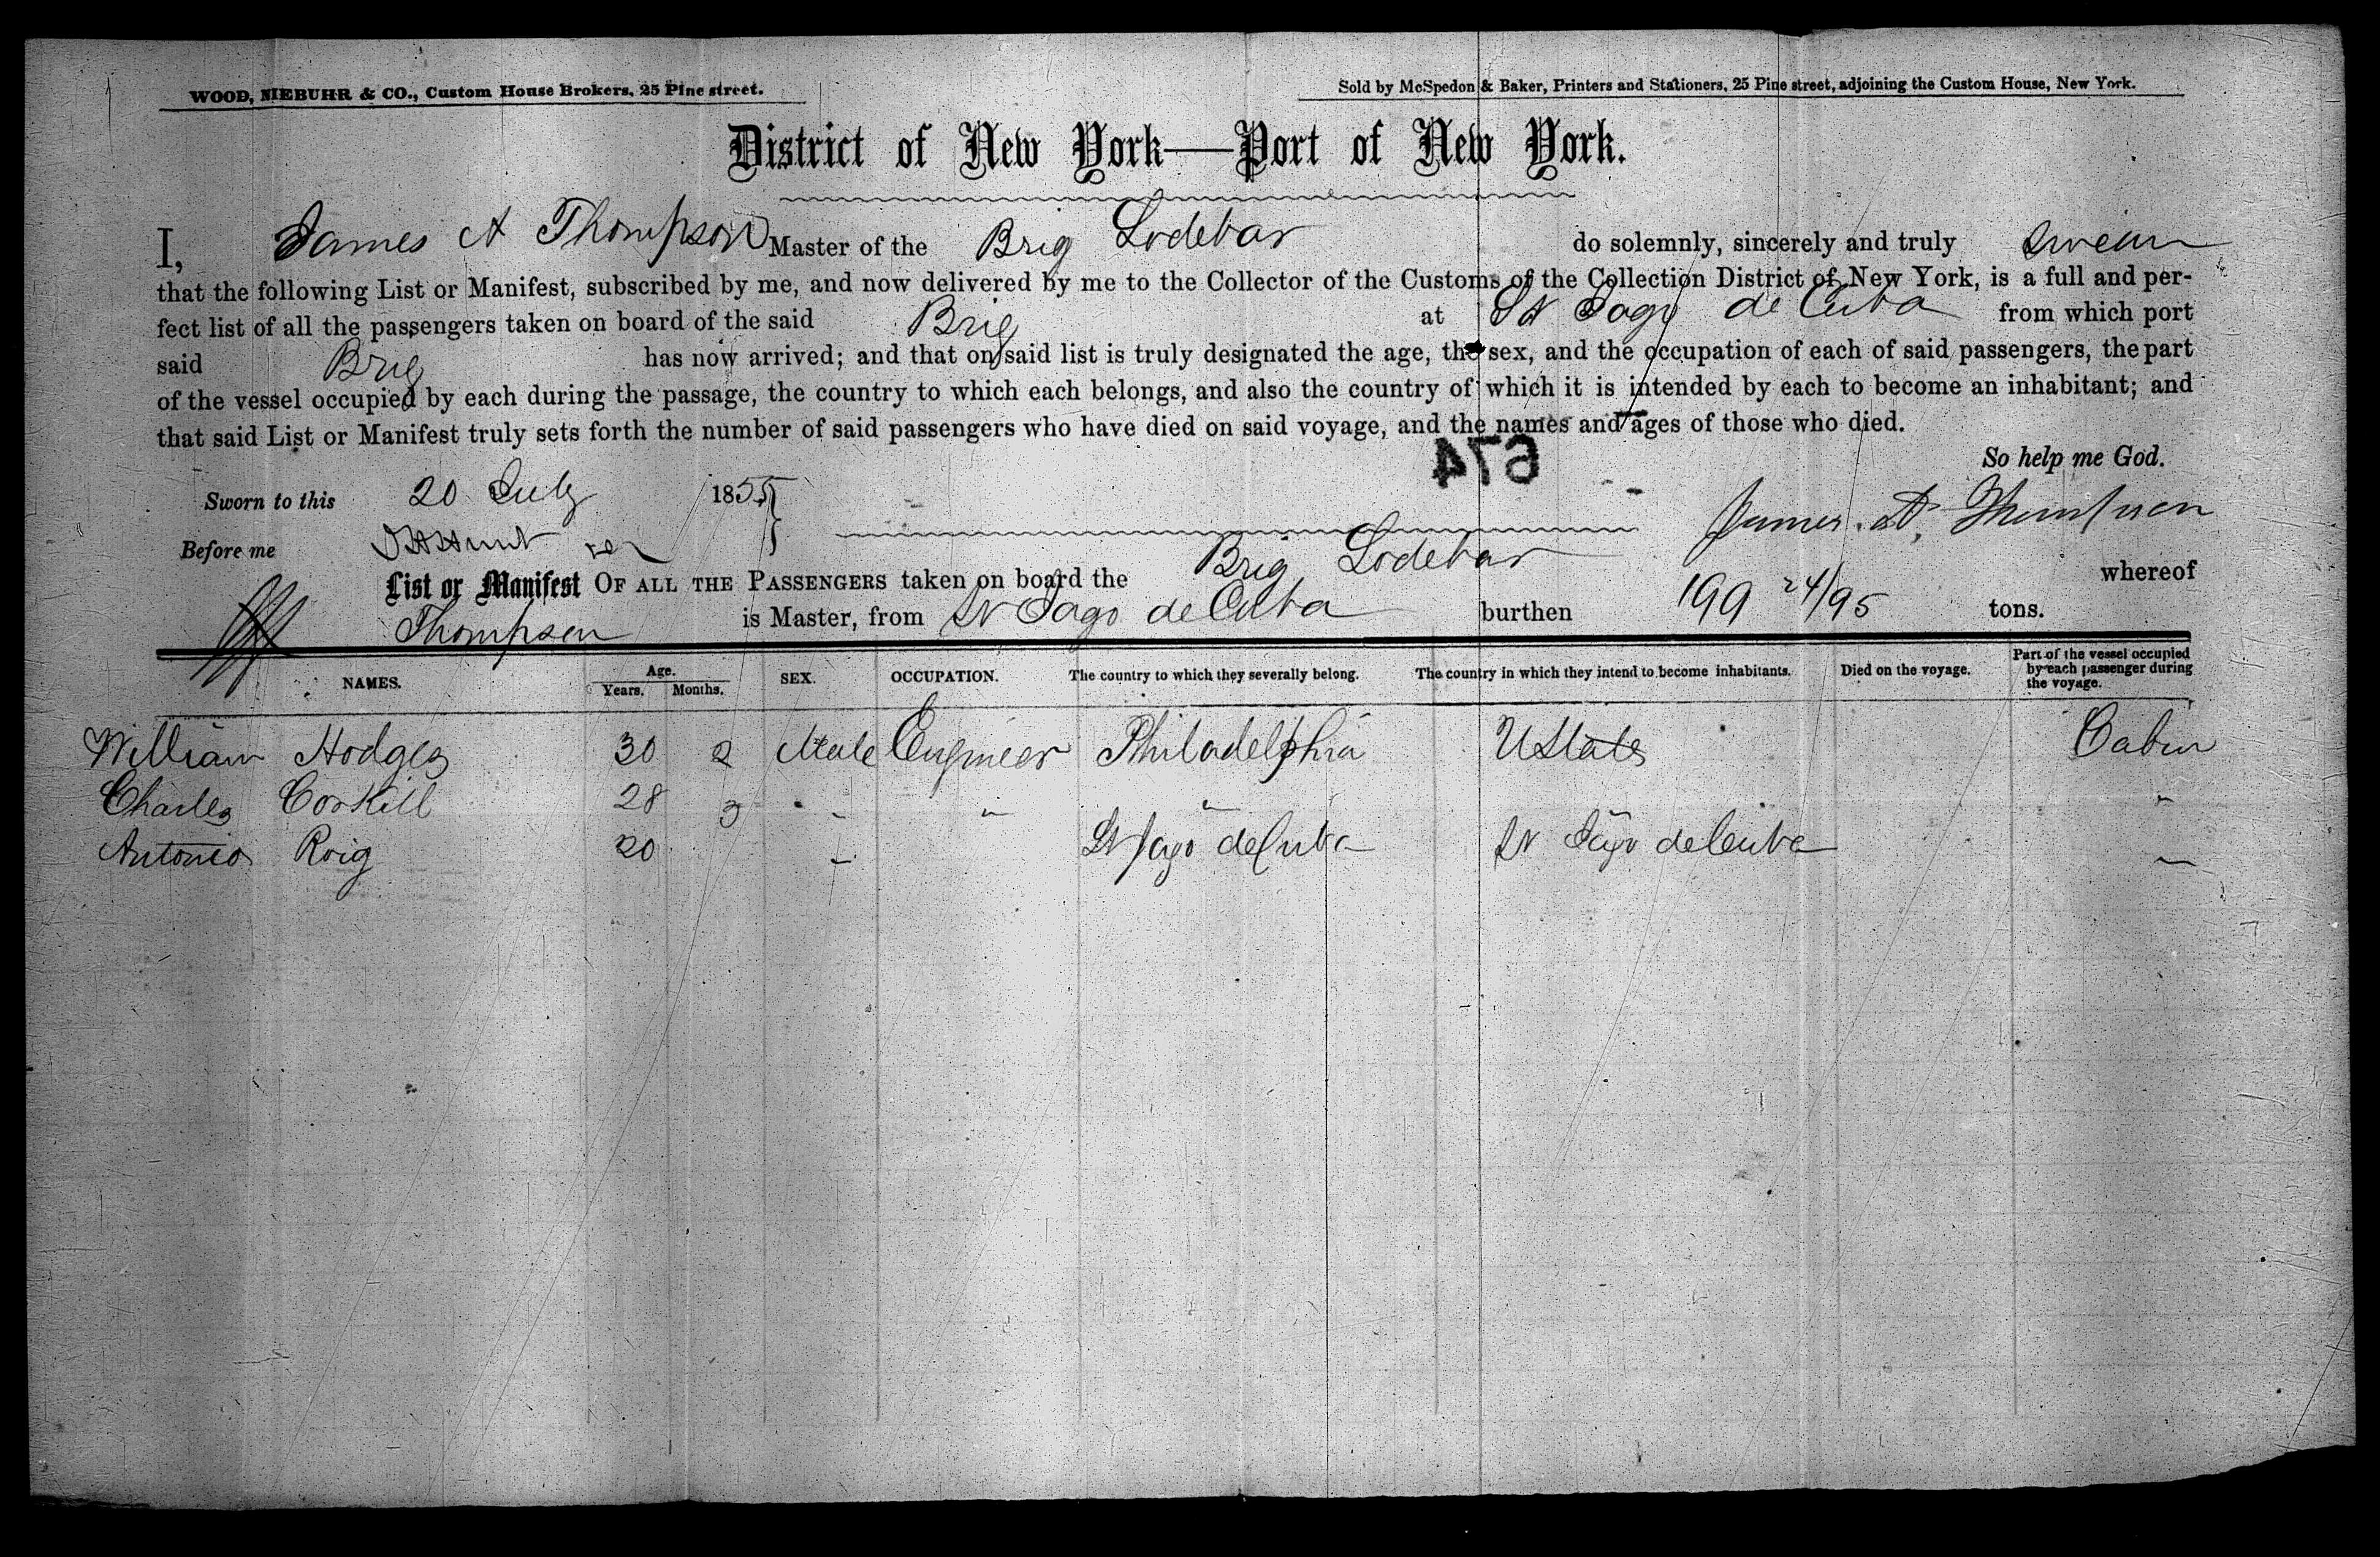 WOOD, NIEBUHR & CO., Custom House Brokers, 25 Pine street.
Sold by McSpedon & Baker, Printers and Stationers, 25 Pine street, adjoining the Custom House, New York.
District of New York—Port of New York.
I, James A Thompson Master of the Brig Lodebar do solemnly, sincerely and truly swear
that the following List or Manifest, subscribed by me, and now delivered by me to the Collector of the Customs of the Collection District of New York, is a full and per-
fect list of all the passengers taken on board of the said Brig at St Jago de Cuba from which port
said Brig has now arrived; and that on said list is truly designated the age, the sex, and the occupation of each of said passengers, the part
of the vessel occupied by each during the passage, the country to which each belongs, and also the country of which it is intended by each to become an inhabitant; and
that said List or Manifest truly sets forth the number of said passengers who have died on said voyage, and the names and ages of those who died.
674
So help me God.
Sworn to this 20 July 1855
James. A. Thompson
Before me
List or Manifest OF ALL THE PASSENGERS taken on board the Brig Lodebar whereof
Thompson is Master, from St Jago de Cuba burthen 199 24/95 tons.
NAMES. Age. Years. Months. SEX. OCCUPATION. The country to which they severally belong. The country in which they intend to become inhabitants. Died on the voyage. Part of the vessel occupied by each passenger during the voyage.
William Hodges 30 2 Male Engineer Philadelphia U States Cabin
Charles Corkill 28 3 " " " " "
Antonio Roig 20 " St Jago de Cuba St Jago de Cuba "